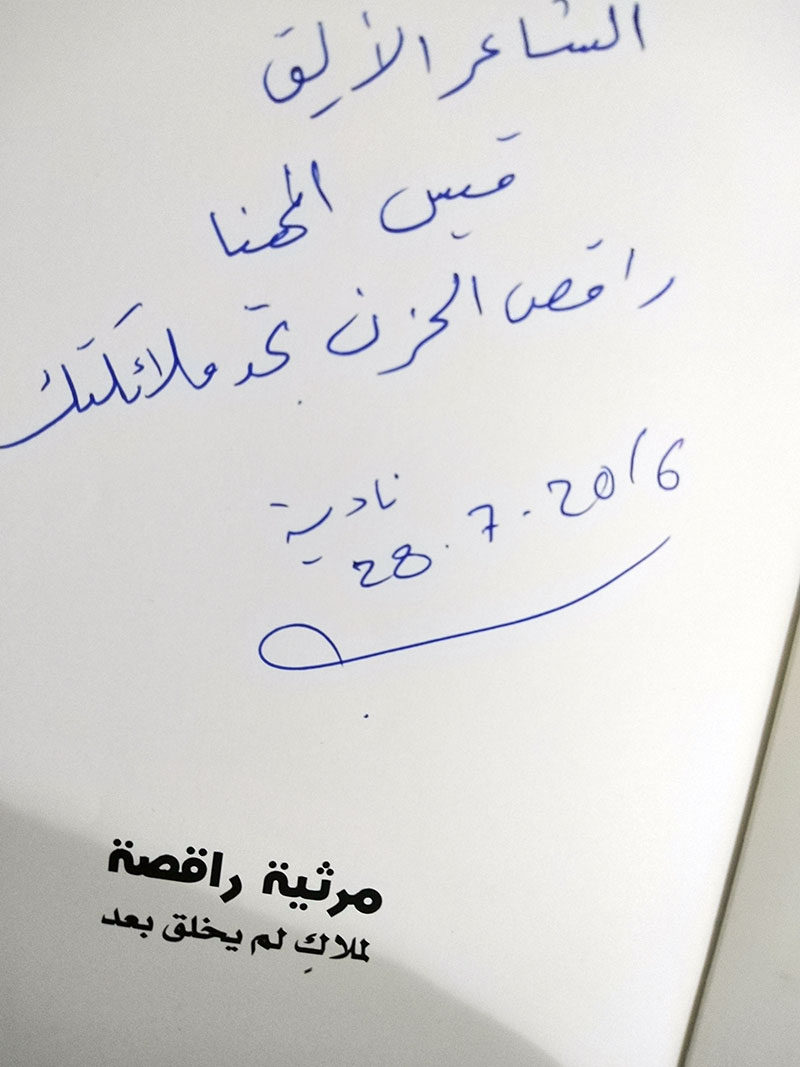 الشاعر الأليق
قيس المهنا
راقص الحزن تجد ملائكتك
نادية
28.7.2016
مرثية راقصة
لملاكٍ لم يخلق بعد